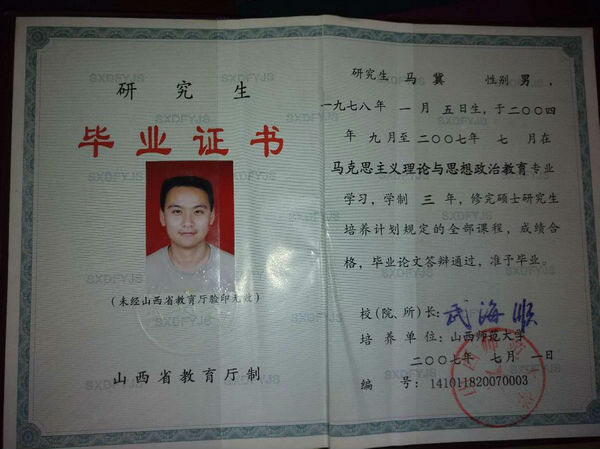 研究生
毕业证书
(未经山西省教育厅验印无效)
山西省教育厅制
研究生 马冀 性别 男，
一九七八年 一 月 五日生，于二〇〇四
年 九月至二〇〇七年 七 月在
马克思主义理论与思想政治教育专业
学习，学制 三 年，修完硕士研究生
培养计划规定的全部课程，成绩合
格，毕业论文答辩通过，准予毕业。
校(院、所)长: 武海顺
培养单位: 山西师范大学
二〇〇七年 七月 一日
编 号: 141011820070003
SXDFYJS